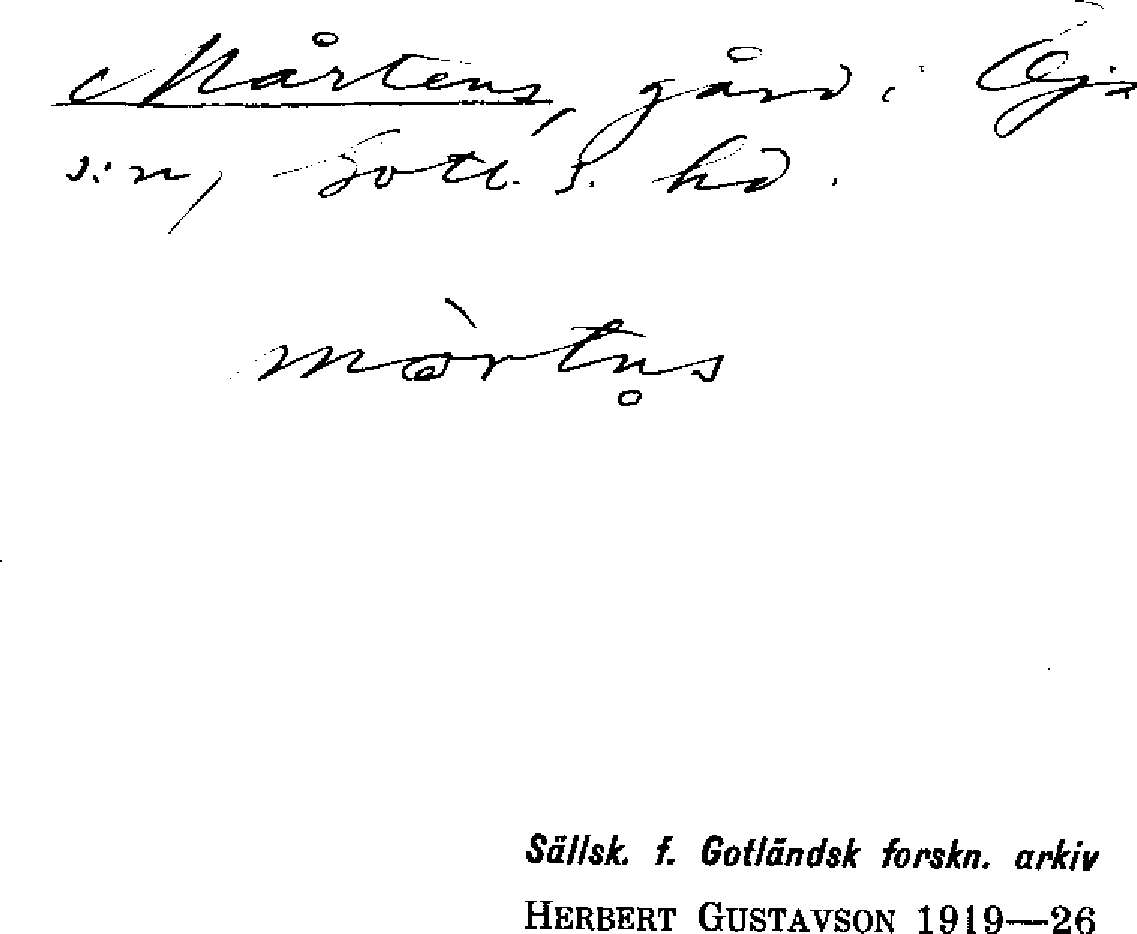 Mårtens, gård i Öja
s:n, Gotl. S. hd.
mòrtn̥s
Sällsk. f. Gotländsk forskn. arkiv
HERBERT GUSTAVSON 1919—26